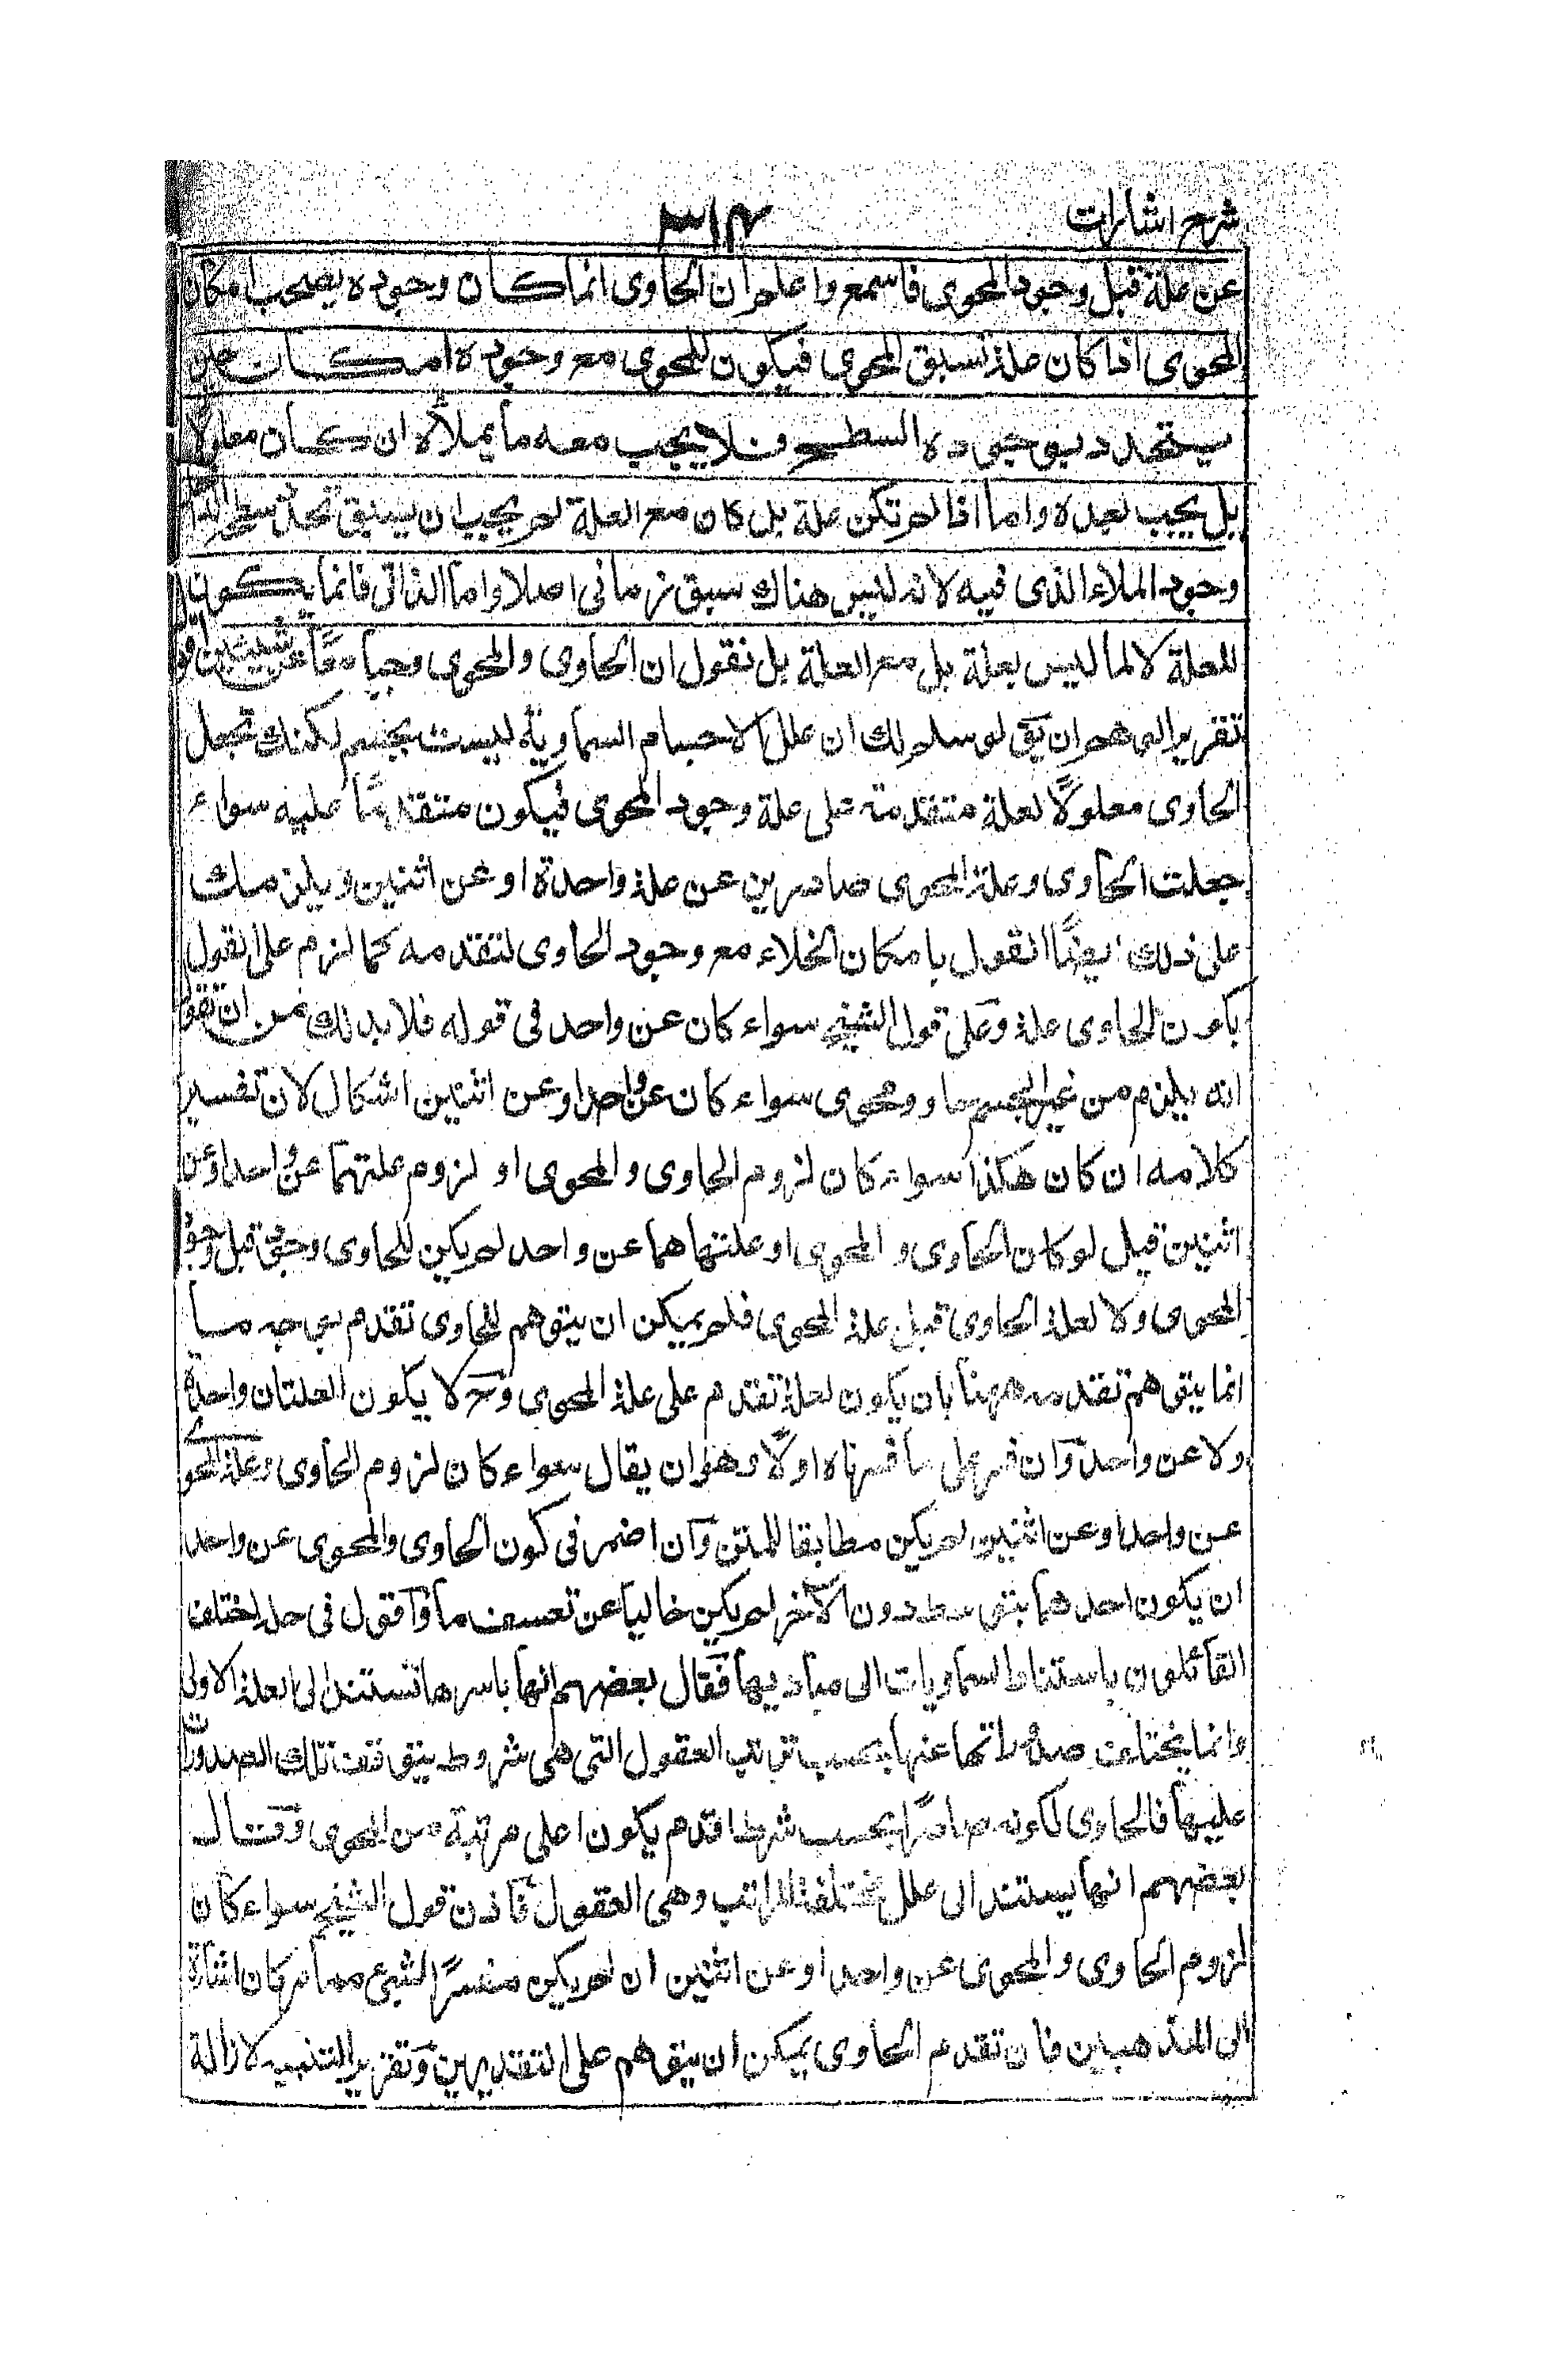 شرح اشارات
٣١٤
عن علة قبل وجود المحوى فاسمع واعلم ان الحاوى انما كان وجوده يصحب امكان
المحوى اذا كان علة تسبق المحوى فيكون للمحوى مع وجوده امكان حين
يتحدد بوجوده السطح فلا يجب معه ما يملأه ان كان معلولا
بل يجب بعده واما اذا لم تكن علة بل كان مع العلة لم يجب ان يسبق تحدد سطحه
وجود الملاء الذى فيه لانه ليس هناك سبق زمانى اصلا واما الذاتى فانما يكون
للعلة لا لما ليس بعلة بل مع العلة بل نقول ان الحاوى والمحوى وجبا معًا عن شيئين اقول
تقرير الوهم ان يقٓ لو سلم لك ان علل الاجسام السماوية ليست بجسم لكنك تجعل
الحاوى معلولًا لعلة متقدمة على علة وجود المحوى فيكون متقدمًا عليه سواء
جعلت الحاوى وعلة المحوى صادرين عن علة واحدة او عن اثنين ويلزمك
على ذلك ايضًا القول بامكان الخلاء مع وجود الحاوى لتقدمه كما لزم على القول
بكون الحاوى علة وعلى قول الشيخ سواء كان عن واحد فى قوله فلا بد لك من ان تقول
انه يلزم من غير الجسم حاو ومحوى سواء كان عن واحد او عن اثنين اشكال لان تفسير
كلامه ان كان هكذا سواء كان لزوم الحاوى والمحوى او لزوم علتهما عن واحد او عن
اثنين قيل لو كان الحاوى والمحوى او علتهاهما عن واحد لم يكن للحاوى وجود قبل وجود
المحوى ولا لعلة الحاوى قبل علة المحوى فلم يمكن ان يتوهم للحاوى تقدم بوجه ما
انما يتوهم تقدمه ههنا بان يكون لعلة تقدم على علة المحوى وحٓ لا يكون العلتان واحدة
ولا عن واحد وان فسر على ما فسرناه اولًا وهو ان يقال سواء كان لزوم الحاوى وعلة المحوى
عن واحد او عن اثنين لم يكن مطابقا للمتن وان اضمر فى كون الحاوى والمحوى عن واحد
ان يكون احدهما بتوسط دون الآخر لم يكن خاليا عن تعسف ما فاقول فى حله اختلف
القائلون باستناد السماويات الى مباديها فقال بعضهم انها باسرها تستند الى العلة الاولى
وانما يختلف صدوراتها عنها بحسب ترتب العقول التى هى شروط يتوقف تلك الصدورات
عليها فالحاوى لكونه صادرًا بحسب شرط اقدم يكون اعلى مرتبة من المحوى وقال
بعضهم انها يستند الى علل مختلفة المراتب وهى العقول فاذن قول الشيخ سواء كان
لزوم الحاوى والمحوى عن واحد او عن اثنين ان لم يكن مفسرًا لشئ مما مر كان اشارة
الى المذهبين فان تقدم الحاوى يمكن ان يتوهم على التقديرين وتقرير التنبيه لازالة